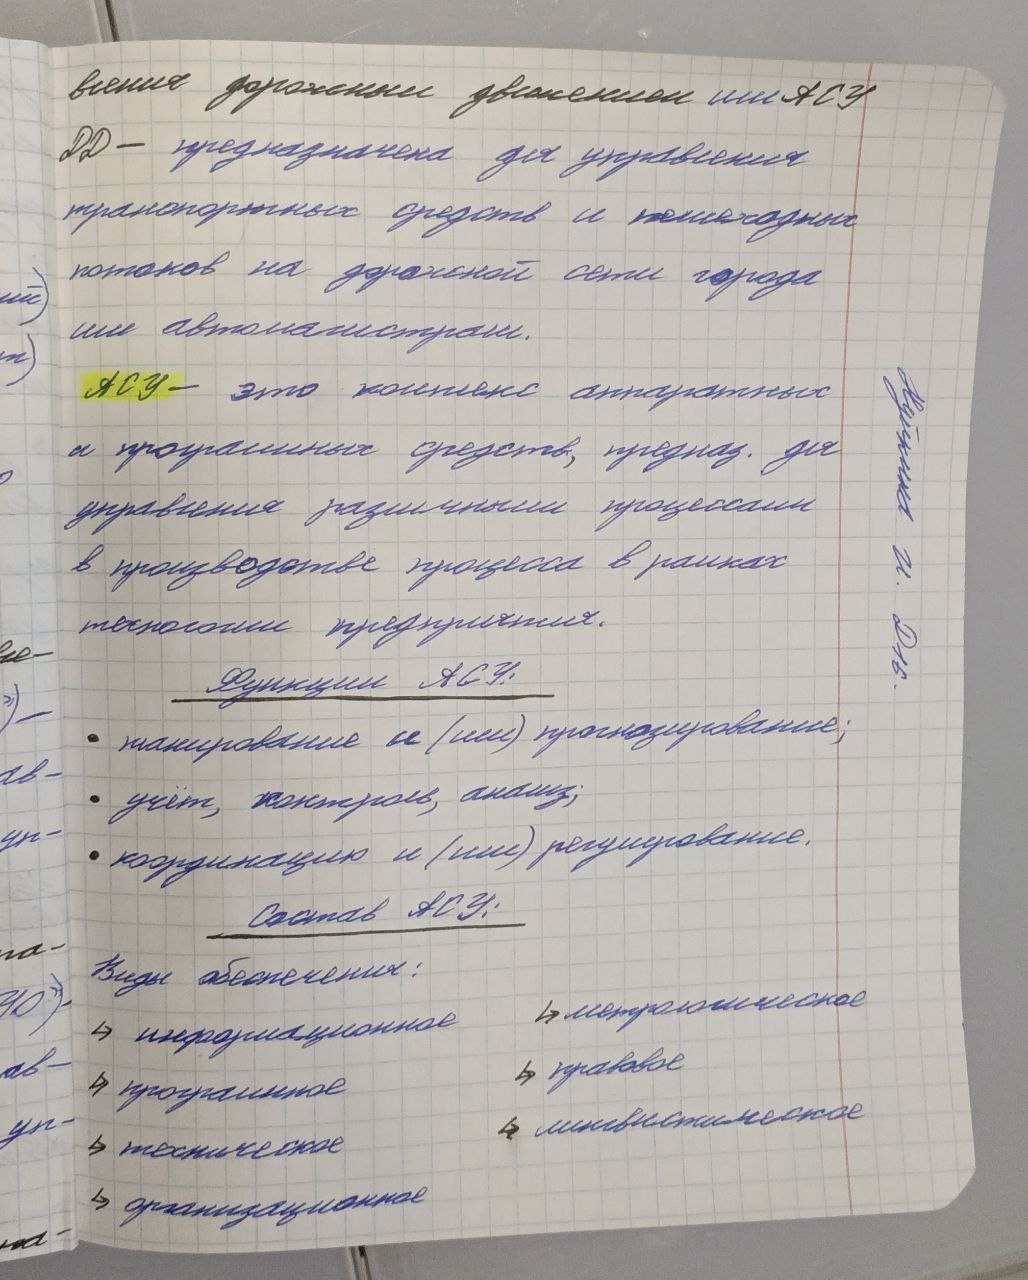 вления дорожным движением или АСУ
ДД — предназначена для управления
транспортных средств и пешеходных
потоков на дорожной сети города
или автомагистрали.
АСУ — это комплекс аппаратных
и программных средств, предназ. для
управления различными процессами
в производстве процесса в рамках
технологии предприятия.
Функции АСУ:
• планирование и (или) прогнозирование;
• учёт, контроль, анализ;
• координацию и (или) регулирование.
Состав АСУ:
Виды обеспечения:
↳ информационное
↳ метрологическое
↳ программное
↳ правовое
↳ техническое
↳ лингвистическое
↳ организационное
И.
ий)
т)
вле-
»)—
ав-
уп-
на-
ав-
уп-
на-